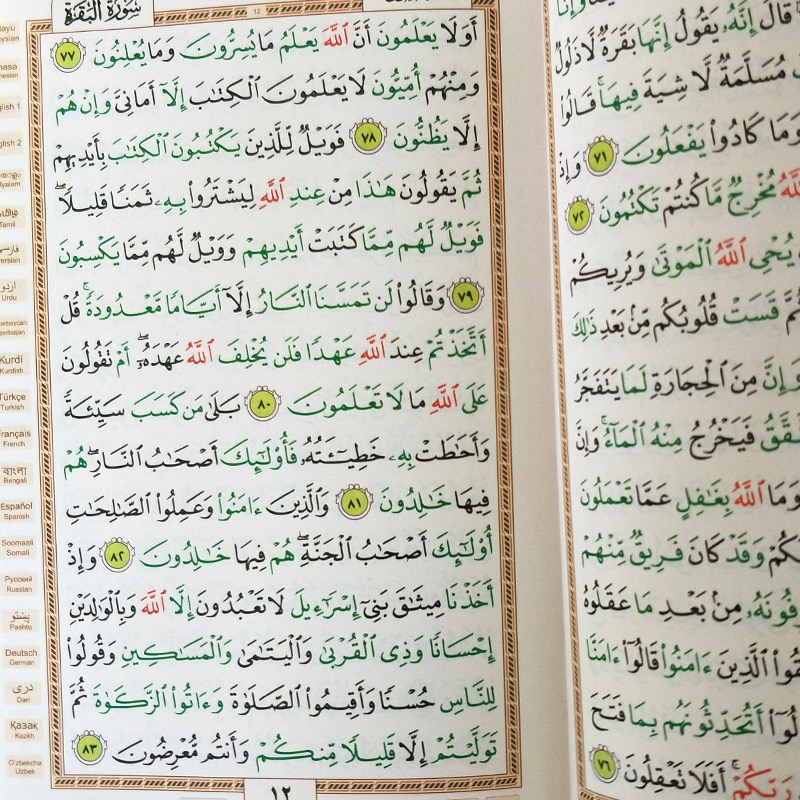 سورة البقرة
أَوَلَا يَعْلَمُونَ أَنَّ ٱللَّهَ يَعْلَمُ مَا يُسِرُّونَ وَمَا يُعْلِنُونَ ٧٧
وَمِنْهُمْ أُمِّيُّونَ لَا يَعْلَمُونَ ٱلْكِتَٰبَ إِلَّآ أَمَانِىَّ وَإِنْ هُمْ
إِلَّا يَظُنُّونَ ٧٨ فَوَيْلٌ لِّلَّذِينَ يَكْتُبُونَ ٱلْكِتَٰبَ بِأَيْدِيهِمْ
ثُمَّ يَقُولُونَ هَٰذَا مِنْ عِندِ ٱللَّهِ لِيَشْتَرُوا۟ بِهِۦ ثَمَنًا قَلِيلًا ۖ
فَوَيْلٌ لَّهُم مِّمَّا كَتَبَتْ أَيْدِيهِمْ وَوَيْلٌ لَّهُم مِّمَّا يَكْسِبُونَ
٧٩ وَقَالُوا۟ لَن تَمَسَّنَا ٱلنَّارُ إِلَّآ أَيَّامًا مَّعْدُودَةً ۚ قُلْ
أَتَّخَذْتُمْ عِندَ ٱللَّهِ عَهْدًا فَلَن يُخْلِفَ ٱللَّهُ عَهْدَهُۥٓ ۖ أَمْ تَقُولُونَ
عَلَى ٱللَّهِ مَا لَا تَعْلَمُونَ ٨٠ بَلَىٰ مَن كَسَبَ سَيِّئَةً
وَأَحَٰطَتْ بِهِۦ خَطِيٓـَٔتُهُۥ فَأُو۟لَٰٓئِكَ أَصْحَٰبُ ٱلنَّارِ ۖ هُمْ
فِيهَا خَٰلِدُونَ ٨١ وَٱلَّذِينَ ءَامَنُوا۟ وَعَمِلُوا۟ ٱلصَّٰلِحَٰتِ
أُو۟لَٰٓئِكَ أَصْحَٰبُ ٱلْجَنَّةِ ۖ هُمْ فِيهَا خَٰلِدُونَ ٨٢ وَإِذْ
أَخَذْنَا مِيثَٰقَ بَنِىٓ إِسْرَٰٓءِيلَ لَا تَعْبُدُونَ إِلَّا ٱللَّهَ وَبِٱلْوَٰلِدَيْنِ
إِحْسَانًا وَذِى ٱلْقُرْبَىٰ وَٱلْيَتَٰمَىٰ وَٱلْمَسَٰكِينِ وَقُولُوا۟
لِلنَّاسِ حُسْنًا وَأَقِيمُوا۟ ٱلصَّلَوٰةَ وَءَاتُوا۟ ٱلزَّكَوٰةَ ثُمَّ
تَوَلَّيْتُمْ إِلَّا قَلِيلًا مِّنكُمْ وَأَنتُم مُّعْرِضُونَ ٨٣
١٢
قَالَ إِنَّهُۥ يَقُولُ إِنَّهَا بَقَرَةٌ لَّا ذَلُولٌ
مُسَلَّمَةٌ لَّا شِيَةَ فِيهَا ۚ قَالُوا۟
وَمَا كَادُوا۟ يَفْعَلُونَ ٧١ وَإِذْ
مُخْرِجٌ مَّا كُنتُمْ تَكْتُمُونَ ٧٢
يُحْىِ ٱللَّهُ ٱلْمَوْتَىٰ وَيُرِيكُمْ
قَسَتْ قُلُوبُكُم مِّنۢ بَعْدِ ذَٰلِكَ
وَإِنَّ مِنَ ٱلْحِجَارَةِ لَمَا يَتَفَجَّرُ
فَيَخْرُجُ مِنْهُ ٱلْمَآءُ ۚ وَإِنَّ
وَمَا ٱللَّهُ بِغَٰفِلٍ عَمَّا تَعْمَلُونَ
وَقَدْ كَانَ فَرِيقٌ مِّنْهُمْ
مِنۢ بَعْدِ مَا عَقَلُوهُ
ٱلَّذِينَ ءَامَنُوا۟ قَالُوٓا۟ ءَامَنَّا
أَتُحَدِّثُونَهُم بِمَا فَتَحَ
رَبِّكُمْ ۚ أَفَلَا تَعْقِلُونَ ٧٦
English 2
தமிழ்
Tamil
فارسی
اردو
Urdu
Kurdî
Kurdish
Türkçe
Turkish
Français
French
বাংলা
Bengali
Español
Spanish
Soomaali
Somali
Русский
Russian
پښتو
Pashto
Deutsch
German
دری
Dari
Қазақ
Kazkh
O'zbekcha
Uzbek